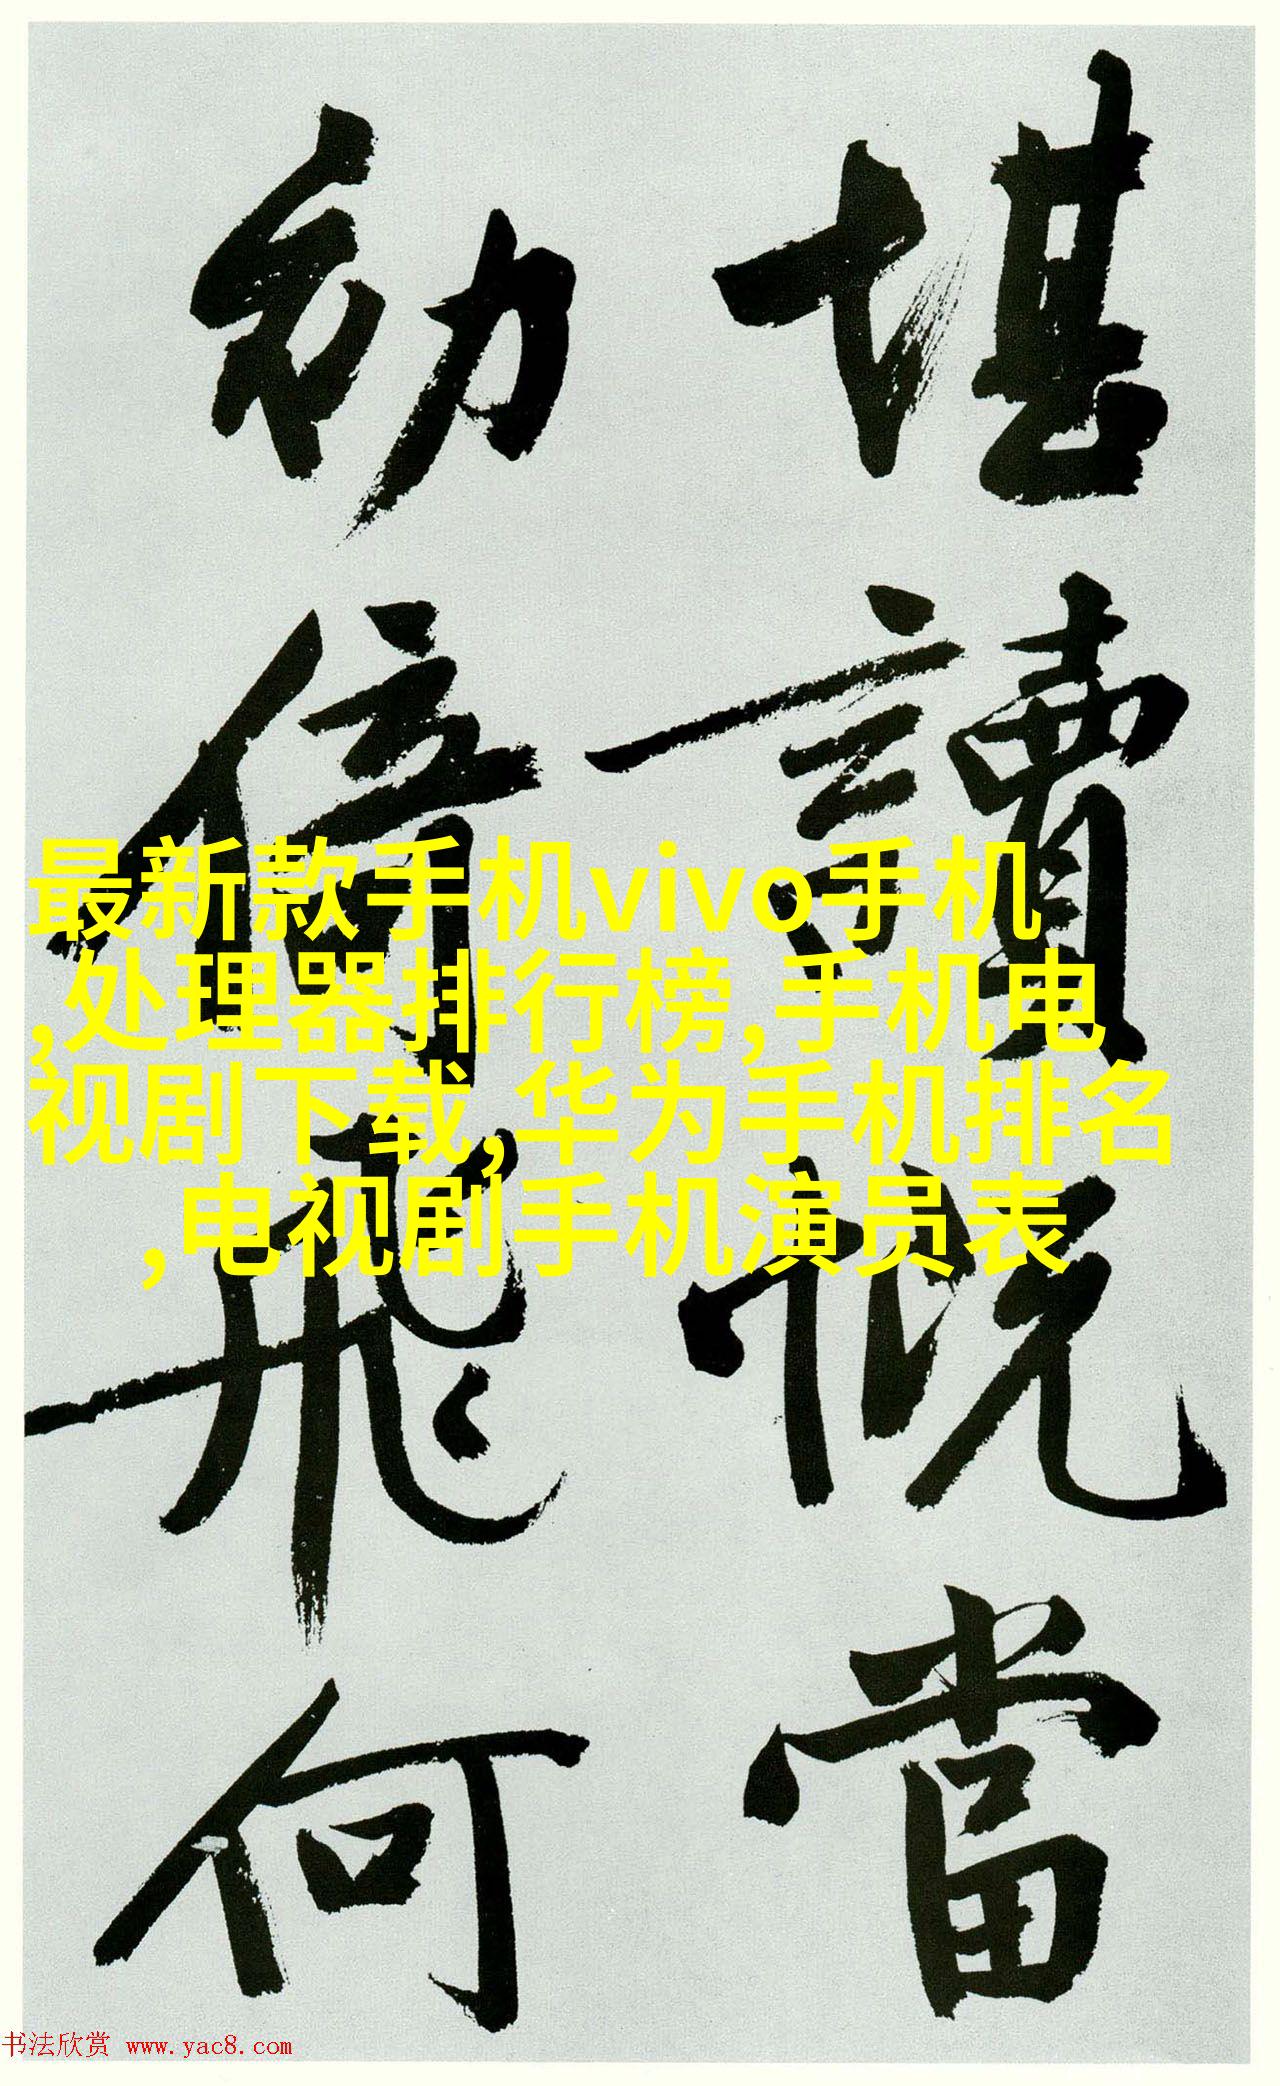 堪讀慨當
初倚飛何
最新款手机vivo手机
,处理器排行榜,手机电
视剧下载,华为手机排名
,电视剧手机演员表
书法欣赏 www.yac8.com